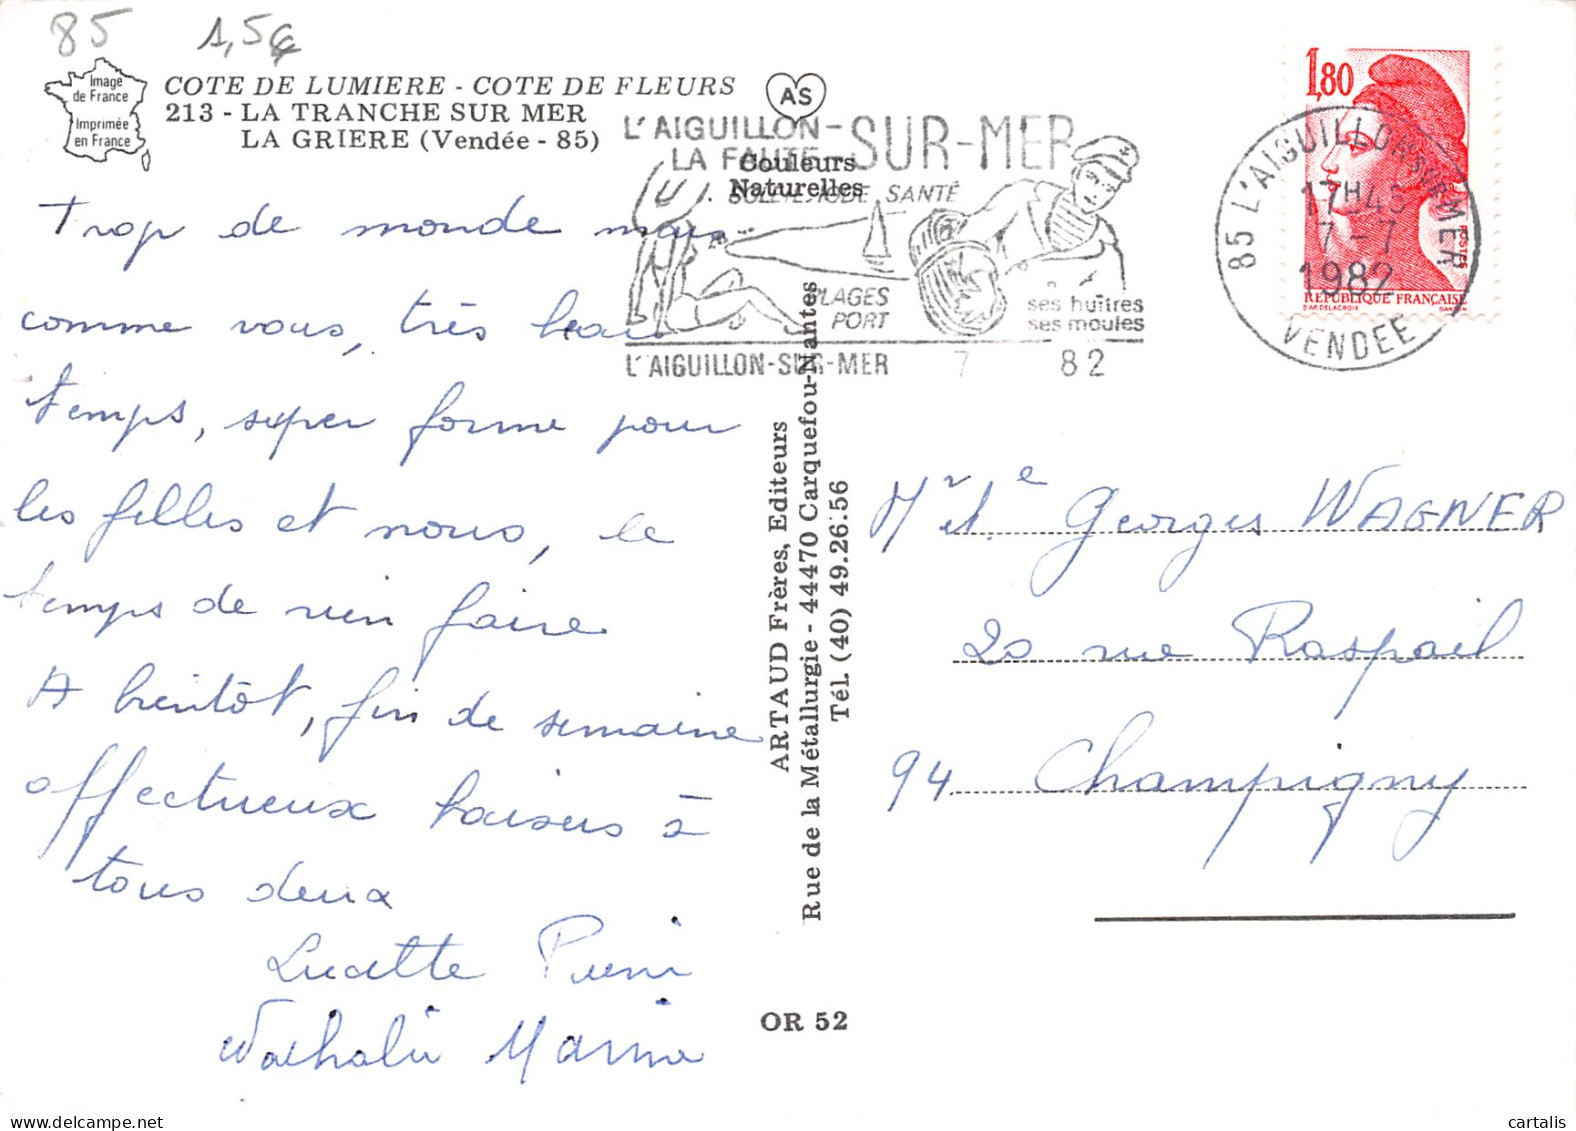 85 1,5€
Image
de France
Imprimée
en France
COTE DE LUMIERE - COTE DE FLEURS
213 - LA TRANCHE SUR MER
LA GRIERE (Vendée - 85)
AS
Couleurs
Naturelles
L'AIGUILLON-
LA FAUTE-SUR-MER
SANTÉ
PLAGES
PORT
ses huîtres
ses moules
L'AIGUILLON-SUR-MER 7 82
1,80
POSTES
REPUBLIQUE FRANÇAISE
85 L'AIGUILLON SUR MER
17H45
7-7
1982
VENDEE
Trop de monde mais
comme vous, très beau
temps, super forme pour
les filles et nous, le
temps de rien faire
A bientôt, fin de semaine
affectueux baisers à
tous deux
Lucette
Nathalie
ARTAUD Frères, Editeurs
Rue de la Métallurgie - 44470 Carquefou-Nantes
Tél. (40) 49.26.56
OR 52
Mr et Me Georges WAGNER
20 rue Raspail
94 Champigny
cartalis